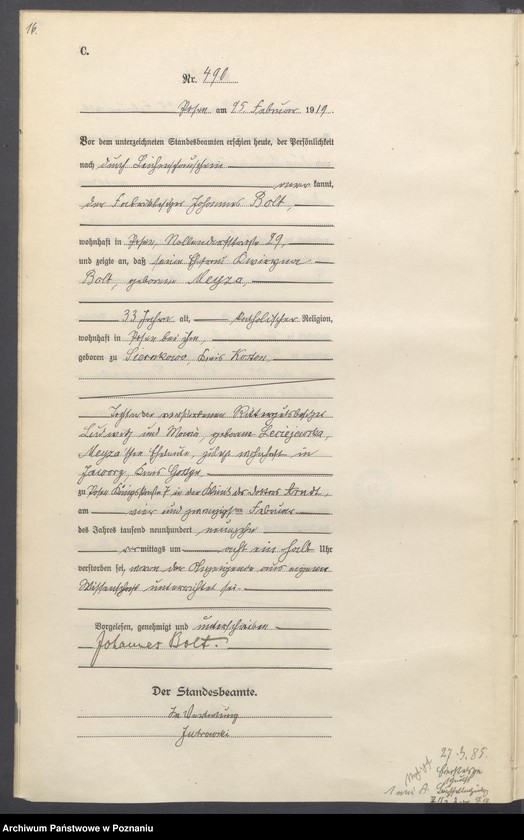 16.
C.
Nr. 490
Posen am 25 Februar 1919.
Vor dem unterzeichneten Standesbeamten erschien heute, der Persönlichkeit
nach durch Leichenschauschein
aner kannt,
der Fabrikbesitzer Johannes Bolt,
wohnhaft in Posen, Nollendorfstraße 29,
und zeigte an, daß seine Ehefrau
Bolt, geborene Meyza,
33 Jahre alt, katholischer Religion,
wohnhaft in Posen bei ihm,
geboren zu Sierakowo, Kreis Kosten
Tochter der verstorbenen Rittergutsbesitzer
Ludwig und Maria, geborene
Meyza'schen Eheleute, zuletzt wohnhaft in
Jawory, Kreis Gostyn
zu Posen Königstraße 7 in der Klinik des Doktors
am vier und zwanzigsten Februar
des Jahres tausend neunhundert neunzehn
vor mittags um acht ein halb Uhr
verstorben sei, wovon der Anzeigende aus eigener
Wissenschaft unterrichtet sei.
Vorgelesen, genehmigt und unterschrieben
Johannes Bolt.
Der Standesbeamte.
In Vertretung
Jutrowski
27.3.85.
Archiwum Państwowe w Poznaniu